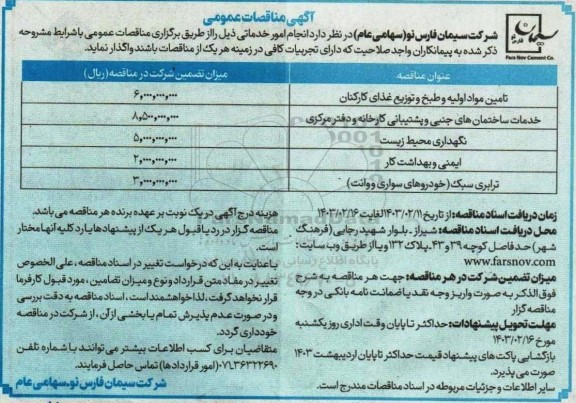 آگهی مناقصات عمومی
شرکت سیمان فارس نو (سهامی عام) در نظر دارد انجام امور خدماتی ذیل را از طریق برگزاری مناقصات عمومی با شرایط مشروحه
ذکر شده به پیمانکاران واجد صلاحیت که دارای تجربیات کافی در زمینه هر یک از مناقصات باشند واگذار نماید.
Fars Nov Cement Co.
عنوان مناقصه
میزان تضمین شرکت در مناقصه (ریال)
تامین مواد اولیه و طبخ و توزیع غذای کارکنان
۶,۰۰۰,۰۰۰,۰۰۰
خدمات ساختمان های جنبی و پشتیبانی کارخانه و دفتر مرکزی
۸,۵۰۰,۰۰۰,۰۰۰
نگهداری محیط زیست
۵,۰۰۰,۰۰۰,۰۰۰
ایمنی و بهداشت کار
۲,۰۰۰,۰۰۰,۰۰۰
ترابری سبک (خودروهای سواری و وانت)
۳,۰۰۰,۰۰۰,۰۰۰
زمان دریافت اسناد مناقصه: از تاریخ ۱۴۰۳/۰۲/۱۱ لغایت ۱۴۰۳/۰۲/۱۶
محل دریافت اسناد مناقصه: شیراز ـ بلوار شهید رجایی (فرهنگ
شهر) حد فاصل کوچه ۳۹ و ۴۳ ـ پلاک ۱۳۲ و یا از طریق وب سایت:
www.farsnov.com
میزان تضمین شرکت در هر مناقصه: جهت هر مناقصه به شرح
فوق الذکر به صورت واریز وجه نقد یا ضمانت نامه بانکی در وجه
مناقصه گزار
مهلت تحویل پیشنهادات: حداکثر تا پایان وقت اداری روز یکشنبه
مورخ ۱۴۰۳/۰۲/۱۶
بازگشایی پاکت های پیشنهاد قیمت حداکثر تا پایان اردیبهشت ۱۴۰۳
صورت می پذیرد.
سایر اطلاعات و جزئیات مربوطه در اسناد مناقصات مندرج است.
هزینه درج آگهی در یک نوبت بر عهده برنده هر مناقصه می باشد.
مناقصه گزار در رد یا قبول هر یک از پیشنهادها یا رد کلیه آنها مختار
است.
با عنایت به این که درخواست تغییر در اسناد مناقصه، علی الخصوص
تغییر در مفاد متن قرارداد و نوع و میزان تضامین، مورد قبول کارفرما
قرار نخواهد گرفت، لذا خواهشمند است، اسناد مناقصه به دقت بررسی
و در صورت عدم پذیرش تمام یا بخشی از آن، از شرکت در مناقصه
خودداری گردد.
متقاضیان برای کسب اطلاعات بیشتر می توانند با شماره تلفن
۰۷۱ـ۳۶۳۲۲۶۹۰ (امور قراردادها) تماس حاصل فرمایند.
شرکت سیمان فارس نو ـ سهامی عام